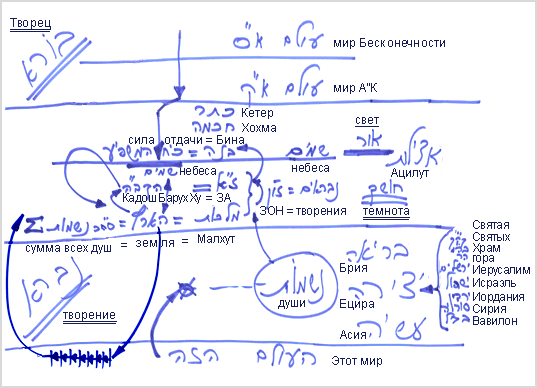 Творец
בורא
עולם א"ס мир Бесконечности
עולם א"ק мир А"К
כתר Кетер
חכמה Хохма
сила отдачи = Бина
בינה = כח המשפיע
свет
אור
אצילות
Ацилут
שמים
небеса
שמים
небеса
ז"א = הקב"ה
КадошБарухХу = ЗА
נבראים = זו"ן
ЗОН =творения
חושך
темнота
Σ נשמות = הארץ = מלכות
сумма всех душ = земля = Малхут
נברא
творение
נשמות
души
בריאה
Брия
יצירה
Ецира
עשיה
Асия
Святая
Святых
Храм
гора
Иерусалим
Исраэль
Иордания
Сирия
Вавилон
העולם הזה Этот мир